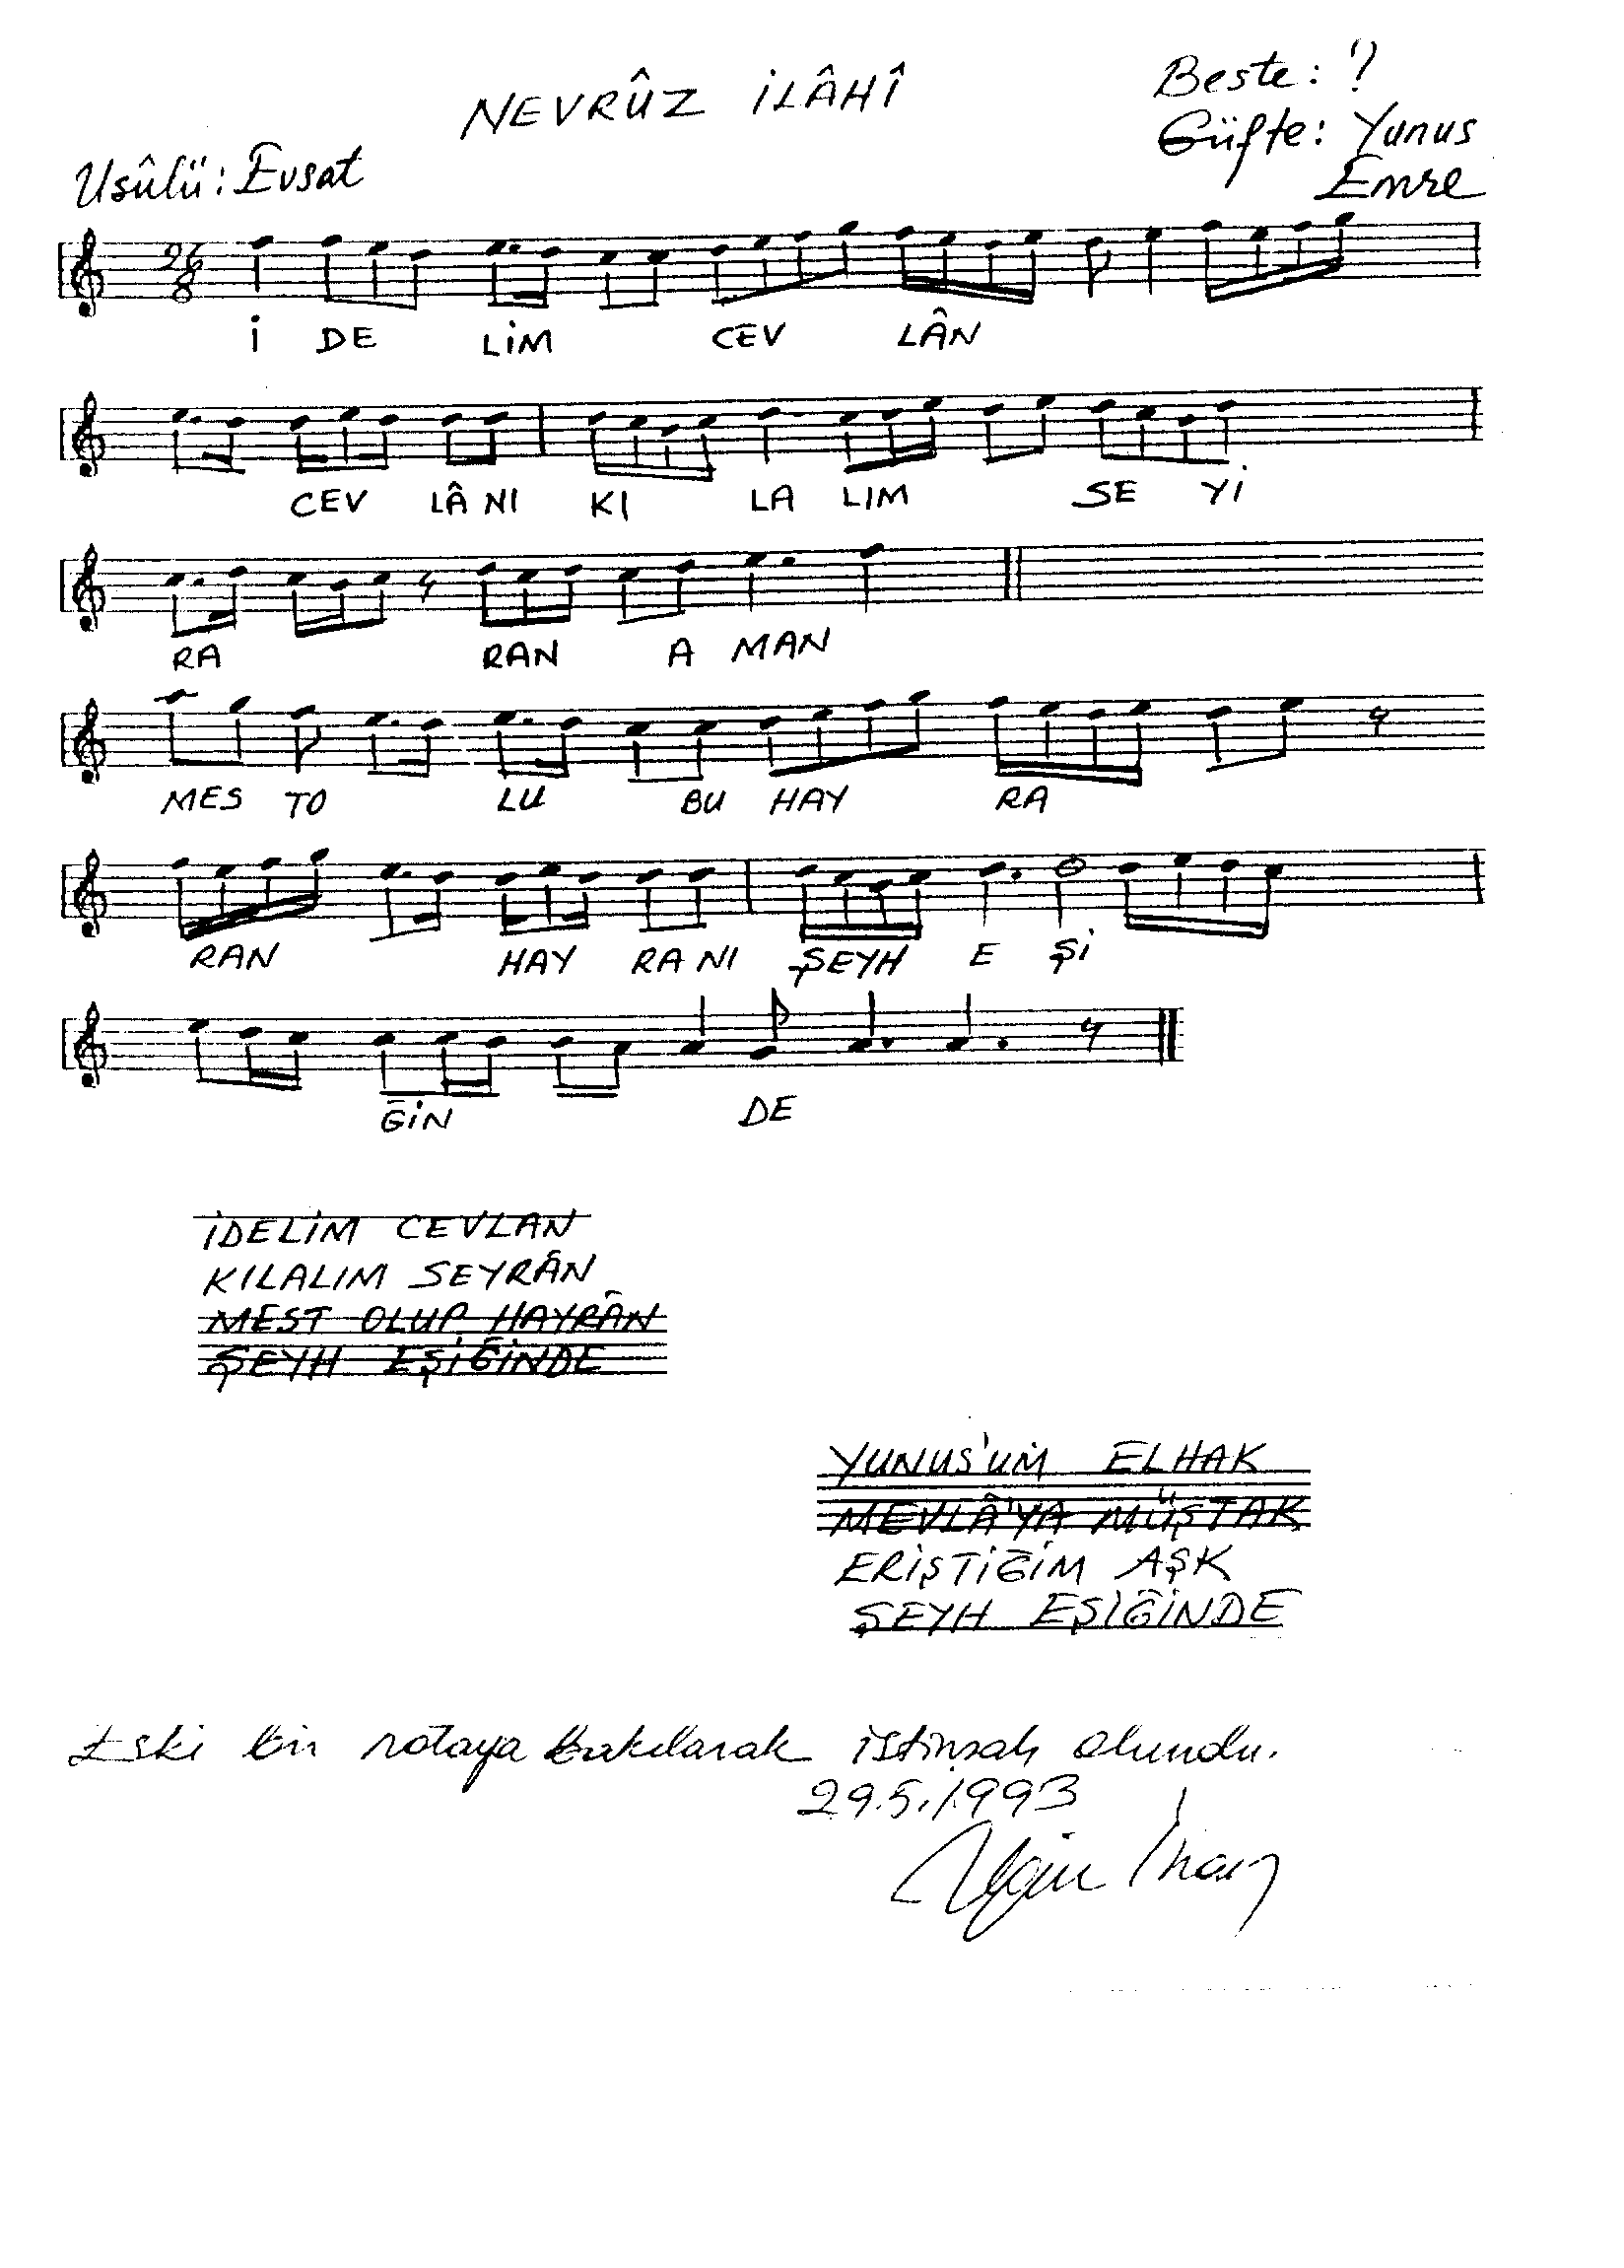 NEVRÛZ İLÂHÎ
Beste: ?
Güfte: Yunus
Emre
Usûlü: Evsat
26
8
İ DE LİM CEV LÂN
CEV LÂ NI KI LA LIM SE Yİ
RA RAN A MAN
MES TO LU BU HAY RA
RAN HAY RA NI ŞEYH E Şİ
ĞİN DE
İDELİM CEVLAN
KILALIM SEYRÂN
MEST OLUP HAYRÂN
ŞEYH EŞİĞİNDE
YUNUS'UM ELHAK
MEVLÂ'YA MÜŞTAK
ERİŞTİĞİM AŞK
ŞEYH EŞİĞİNDE
Eski bir notaya bakılarak istinsah olundu.
29.5.1993